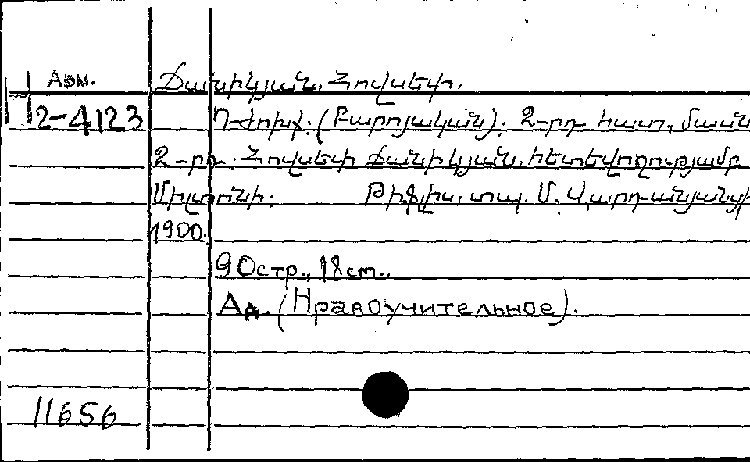 Арм. Ճանիկյան, Հովսեփ.
П 2-4123 Դժոխք. (Բարոյական). 2-րդ հատ, մասն
2-րդ. Հովսեփ Ճանիկյան, հետեվողությամբ
Միլտոնի: Թիֆլիս, տպ. Մ. Վարդանյանցի
1900.
90стр., 18см.,
Ад. (Нравоучительное).
11656